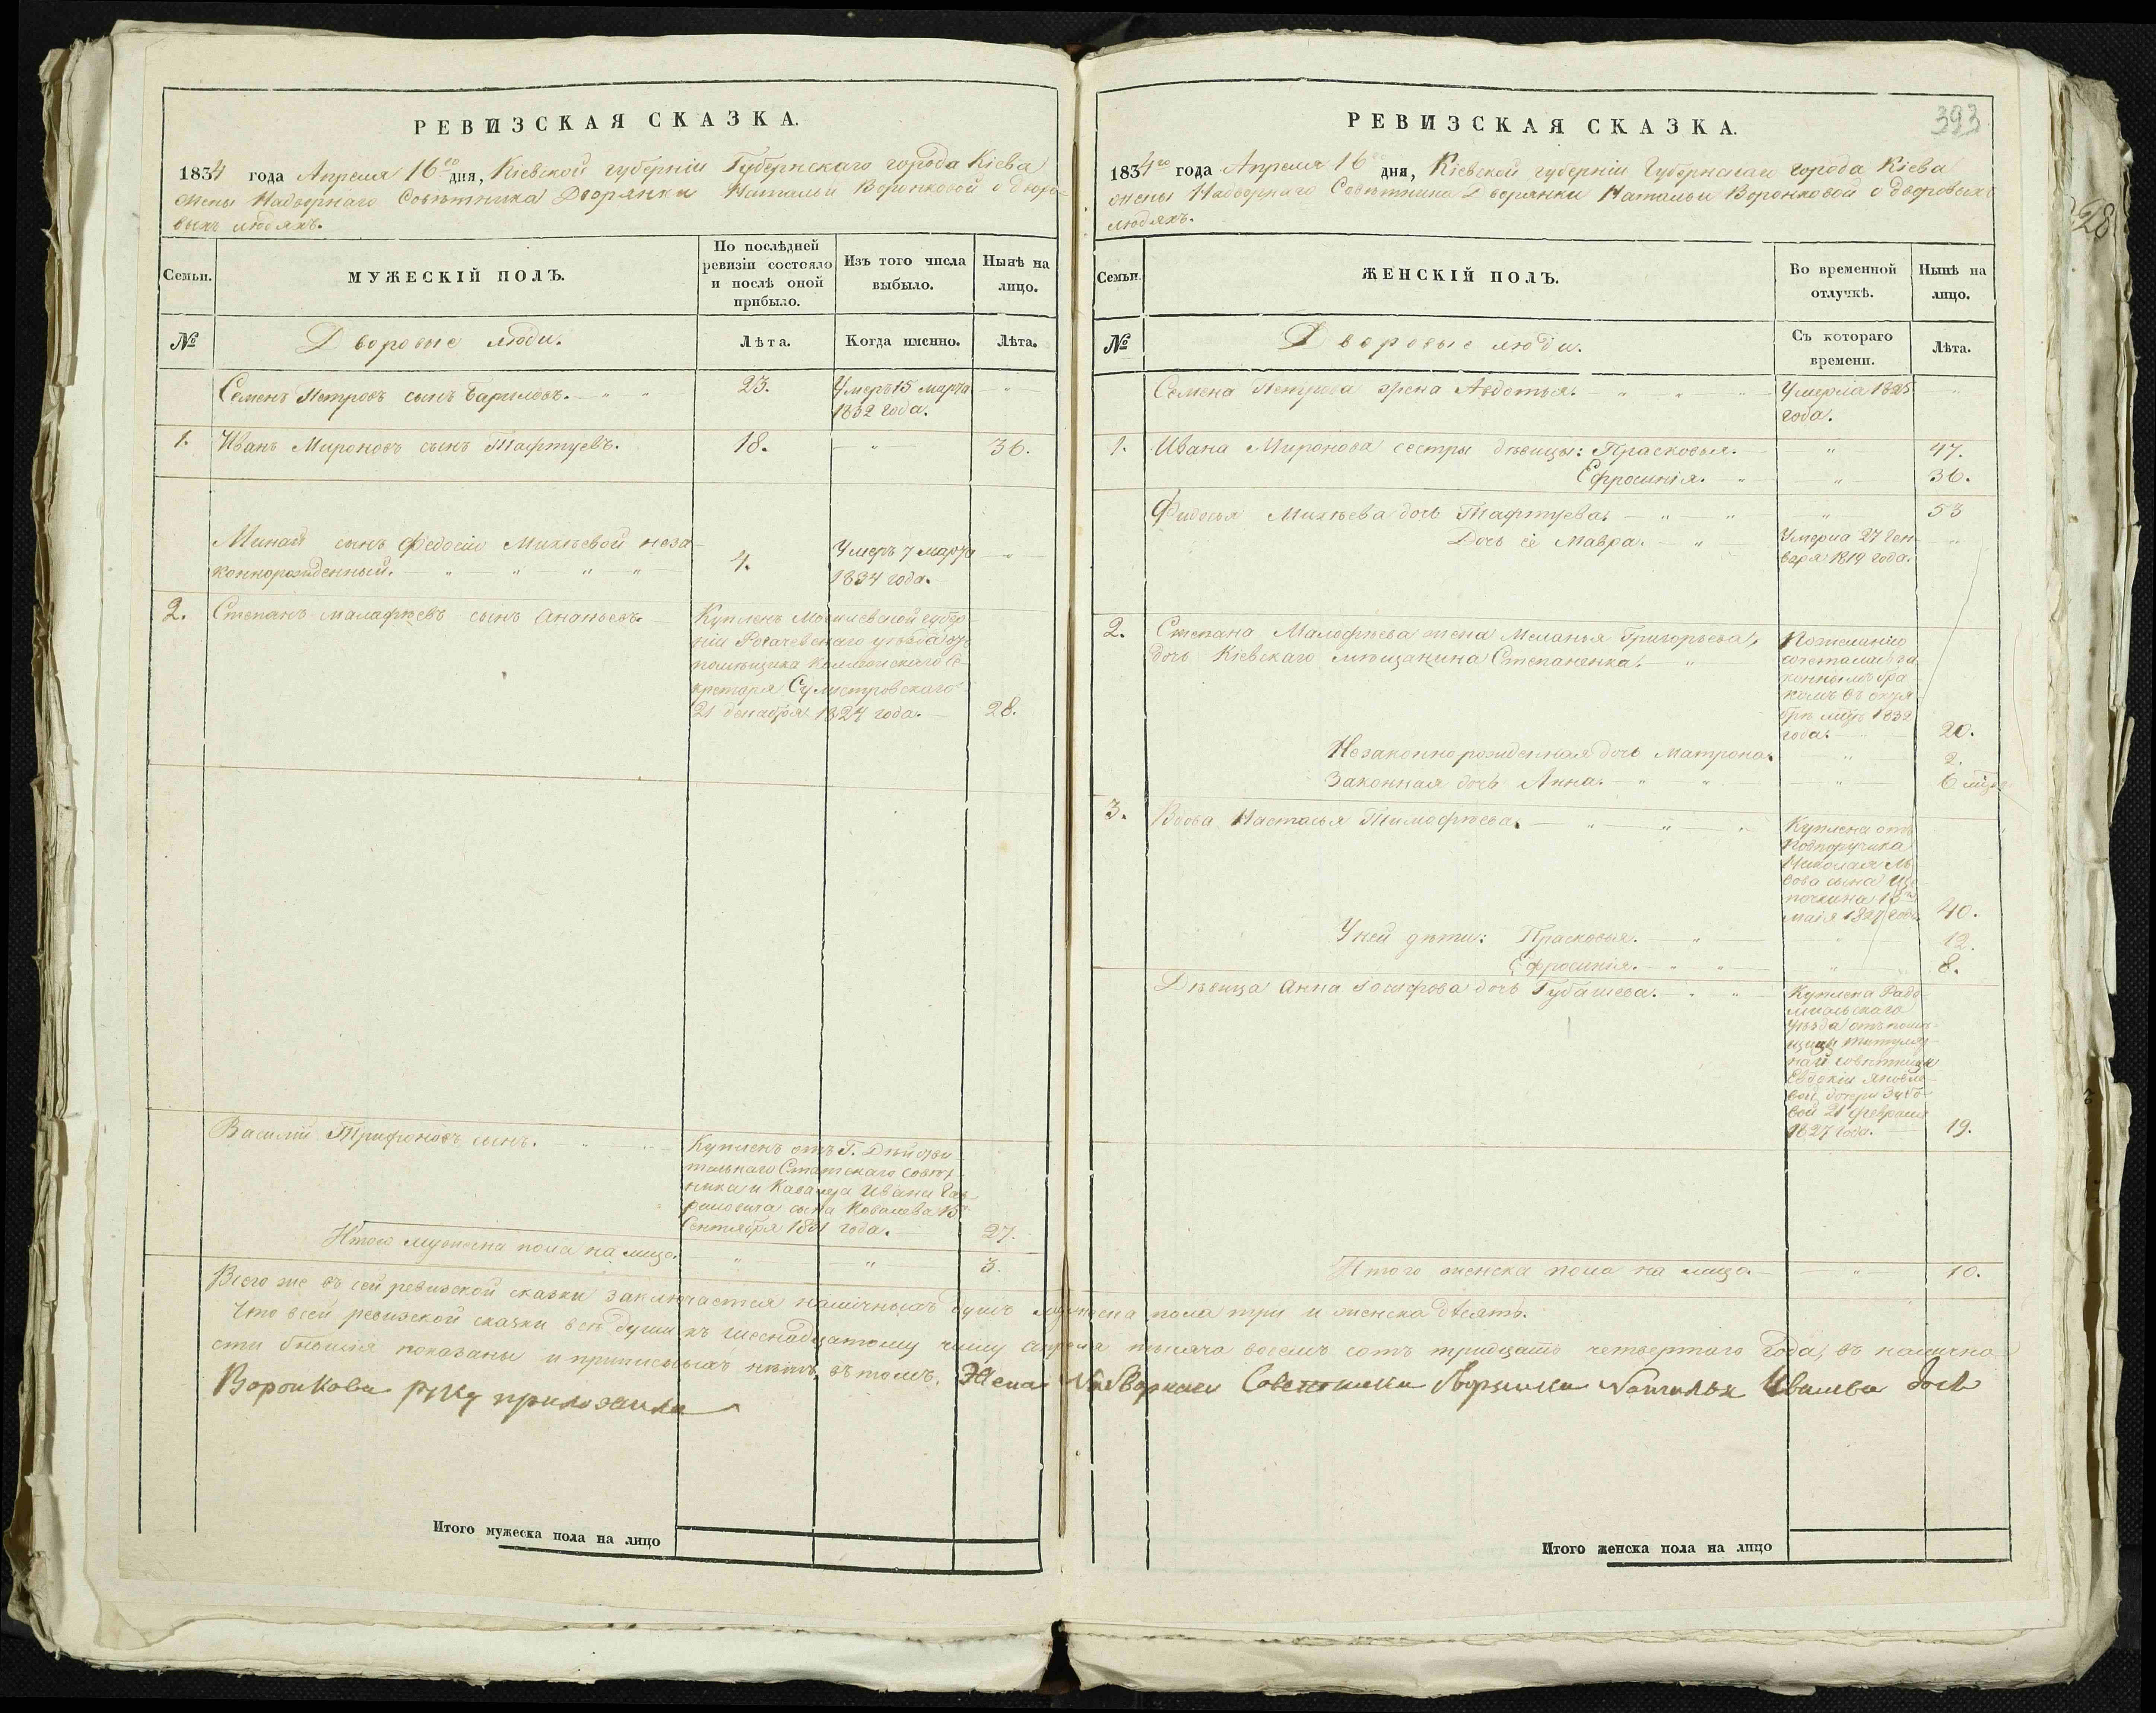 РЕВИЗСКАЯ СКАЗКА.
1834 года Апреля 16го дня, Кіевской губерніи Губернскаго города Кіева
жены Надворнаго Совѣтника Дворянки Натальи Воронковой о дворо-
выхъ людяхъ.
Семьи.
МУЖЕСКІЙ ПОЛЪ.
По послѣдней
ревизіи состояло
и послѣ оной
прибыло.
Изъ того числа
выбыло.
Нынѣ на
лицо.
№
Дворовые люди.
Лѣта.
Когда именно.
Лѣта.
Семенъ Петровъ сынъ 23. Умеръ 15 марта
1832 года.
1. Иванъ Мироновъ сынъ Тафтуевъ. 18. 36.
Минай сынъ Федосіи Михѣевой неза-
коннорожденный. 4. Умеръ 7 марта
1834 года.
2. Степанъ Малафѣевъ сынъ Ананьевъ. Купленъ Могилевской губер-
ніи Рогачевскаго уѣзда отъ
помѣщика Коллежскаго Се-
кретаря
21 декабря 1824 года. 28.
Василій Трифоновъ сынъ. Купленъ отъ Г. Дѣйстви-
тельнаго Статскаго Совѣт-
ника и Кавалера Ивана Гав-
риловича сына Ковалева 15
Сентября 1831 года. 27.
Итого мужеска пола на лицо. 3.
Итого мужеска пола на лицо
РЕВИЗСКАЯ СКАЗКА.
393
28
1834го года Апреля 16 дня, Кіевской губерніи Губернскаго города Кіева
жены Надворнаго Совѣтника Дворянки Натальи Воронковой о дворовыхъ
людяхъ.
Семьи.
ЖЕНСКІЙ ПОЛЪ.
Во временной
отлучкѣ.
Нынѣ на
лицо.
№
Дворовые люди.
Съ котораго
времени.
Лѣта.
Семена Петрова жена Авдотья. Умерла 1825
года.
1. Ивана Миронова сестры дѣвицы: Прасковья. 47.
Ефросинія. 36.
Фидосья Михѣева дочь Тафтуева. 53
Дочь ее Мавра. Умерла 27 Ген-
варя 1819 года.
2. Степана Малофѣева жена Меланья Григорьева,
дочь Кіевскаго мѣщанина Степаненка. По желанію
сочеталась за-
коннымъ бра-
комъ въ октя-
брѣ мцѣ 1832
года. 20.
Незаконнорожденная дочь Матрона. 2.
Законная дочь Анна. 6 мцов
3. Вдова Настасья Тимофѣева. Куплена отъ
Подпоручика
Николая Ль-
вова сына
15
маія 1827 года 40.
У ней дѣти: Прасковья. 12.
Ефросинія. 8.
Дѣвица Анна Іосифова дочь Губашева. Куплена Радо-
мысльскаго
уѣзда отъ помѣ-
щицы титуляр-
ной совѣтницы
Евдокіи Яковле-
вой дочери
21 февраля
1827 года. 19.
Итого женска пола на лицо. 10.
Всего же въ сей ревизской сказки заключается наличныхъ душъ мужеска пола три и женска десять.
Что в сей ревизской сказки всѣ души къ шеснадцатому числу апреля тысяча восемь сотъ тридцать четвертаго года, въ налично-
сти бывшія показаны и приписныхъ нѣтъ, въ томъ. Жена Надворнаго Советника Дворянка Наталья Иванова дочь
Воронкова руку приложила
Итого женска пола на лицо